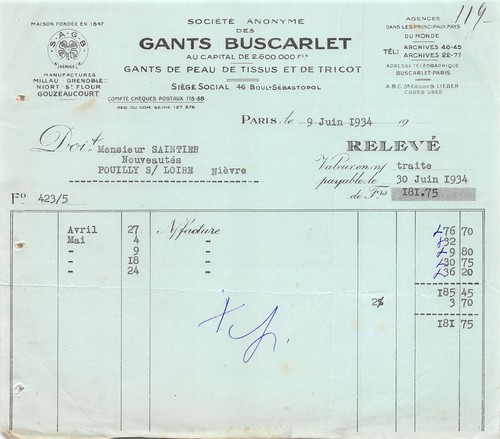 119-
MAISON FONDÉE EN 1847
S.A.G.B
DÉPOSÉE
MANUFACTURES
MILLAU GRENOBLE
NIORT ST FLOUR
GOUZEAUCOURT
SOCIÉTÉ ANONYME
DES
GANTS BUSCARLET
AU CAPITAL DE 2.600.000 FRS
GANTS DE PEAU DE TISSUS ET DE TRICOT
SIÈGE SOCIAL 46 BOULD SÉBASTOPOL
COMPTE CHÈQUES POSTAUX 115-58
REG. DU COM. SEINE 187.578
AGENCES
DANS LES PRINCIPAUX PAYS
DU MONDE
TÉL: ARCHIVES 46-45
ARCHIVES 22-77
ADRESSE TÉLÉGRAPHIQUE
BUSCARLET-PARIS
A.B.C. 5th EDITION & LIEBER
CODES USED
PARIS, le 9 Juin 1934 19
Doit Monsieur SAINTIER
Nouveautés
POUILLY S/ LOIRE Nièvre
RELEVÉ
Valeur en n/ traite
payable le 30 Juin 1934
de Frs 181.75
Fo 423/5
Avril 27 N/facture " 76 70
Mai 4 " 32
" 9 " 9 80
" 18 " 30 75
" 24 " 36 20
185 45
2% 3 70
181 75